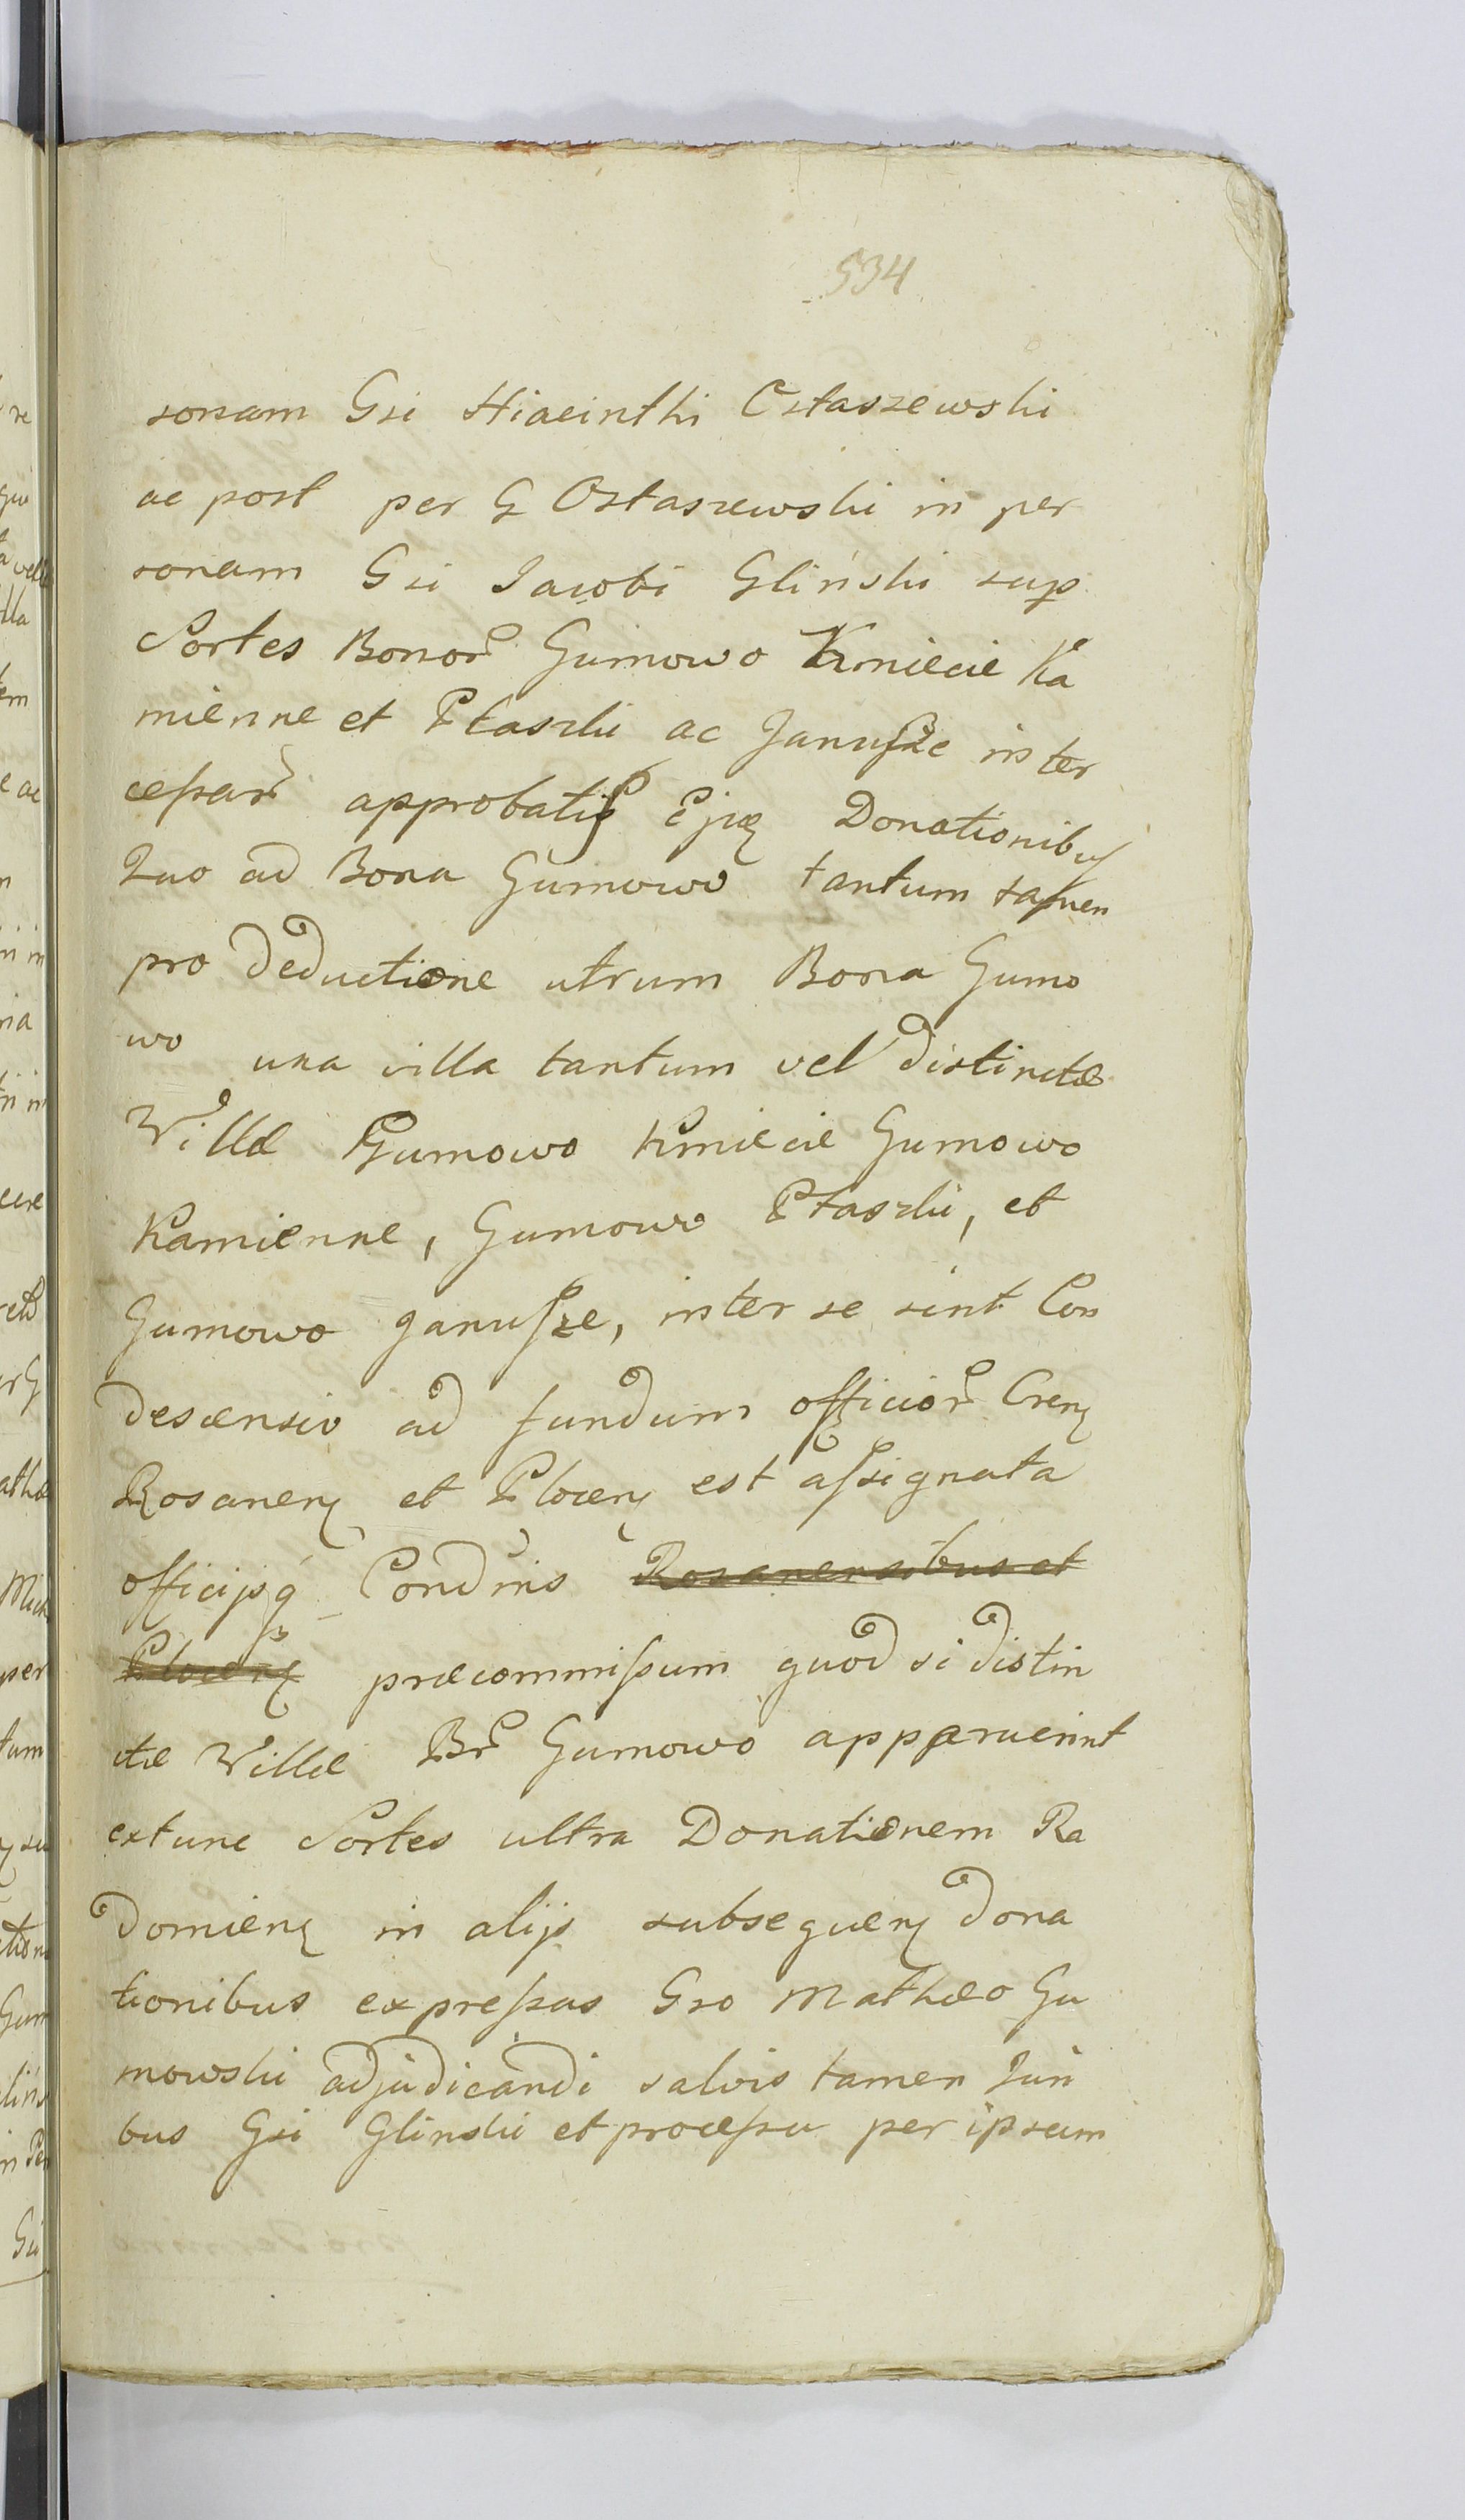 534
sonam Gsi Hiacinthi Ostaszewski
ac post per G Ostaszewski in per
sonam Gsi Jacobi Gliński sup
Sortes Bonor Gumowo Kmiecie Ka
mienne et Ptaszki ac Janusze inter
cessar approbatis Ejq Donationibus
Quo ad Bona Gumowo tantum tamen
pro deductione utrum Bona Gumo
wo una villa tantum vel distinctæ
Villæ Gumowo Kmiecie Gumowo
Kamienne, Gumowo Ptaszki, et
Gumowo Janusze, inter se sint Con
descensio ad fundum officior Cren
Rosanen et Plocen est assignata
officijsq Condnis Rosanensibus et
Plocen præcommissum quod si distin
ctæ Villæ Br Gumowo apparuerint
extunc Sortes ultra Donationem Ra
domien in alijs subsequen dona
tionibus expressas Gso Mathæo Gu
mowski adjudicandi salvis tamen Juri
bus Gsi Glinski et processu per ipsum